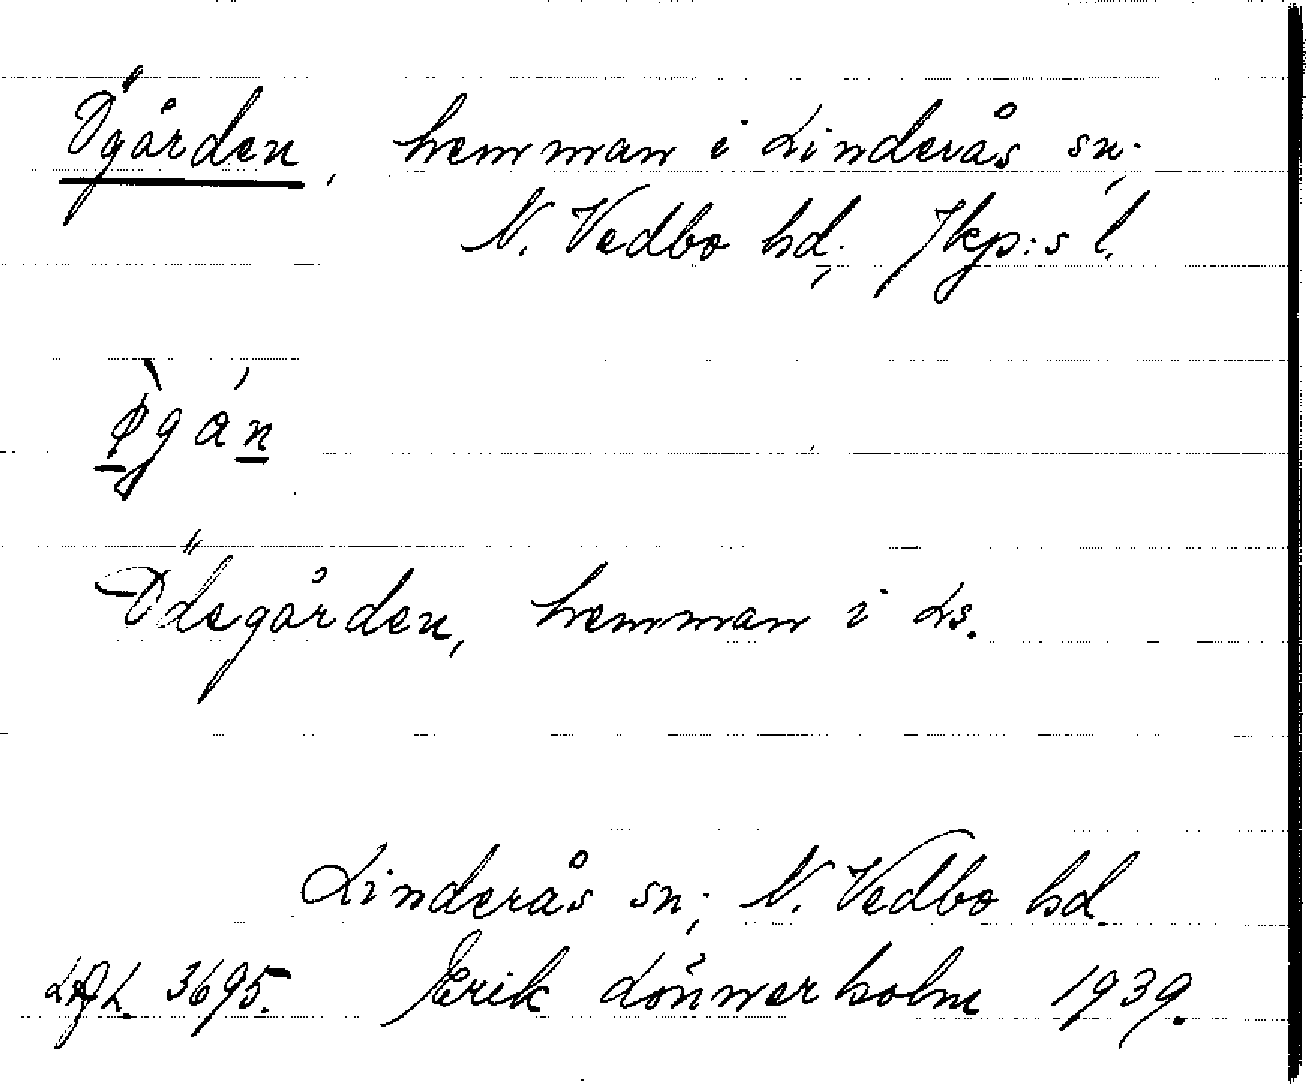 Ögården, hemman i Linderås sn;
N. Vedbo hd; Jkp:s l.
ø̀gán
Ödegården, hemman i Ls.
Linderås sn; N. Vedbo hd.
3695. Erik Lönnerholm 1939.